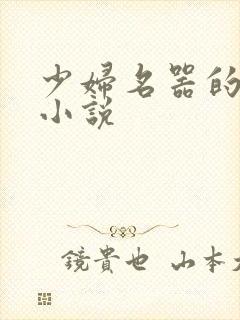 少婦名器的
小說
鏡貴也 山本